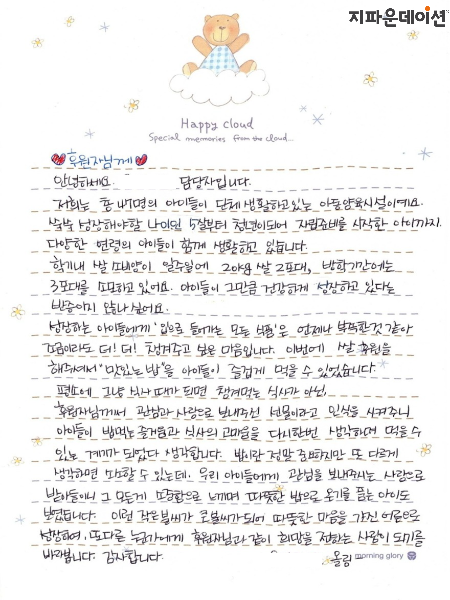 지파운데이션
Happy cloud
Special memories from the cloud...
후원자님께
안녕하세요. 담당자입니다.
저희는 총 47명의 아이들이 단체생활하고있는 아동양육시설이에요.
성장해야할 나이인 5살부터 청년이되어 자립준비를 시작한 아이까지
다양한 연령의 아이들이 함께 생활하고 있습니다.
학기내 쌀 소비량이 일주일에 20kg 쌀 2포대, 방학기간에는
3포대를 소모하고 있어요. 아이들이 그만큼 건강하게 성장하고 있다는
반증이지 않나 싶어요.
성장하는 아이들에게 '입으로 들어가는 모든 식품'은 언제나 부족한것 같아
조금이라도 더! 더! 챙겨주고 싶은 마음입니다. 이번에 쌀 후원을
해주셔서 "맛있는 밥"을 아이들이 즐겁게 먹을 수 있었습니다.
평소에 그냥 식사때가 되면 챙겨먹는 식사가 아닌,
후원자님께서 관심과 사랑으로 보내주신 선물이라고 인식을 시켜주니
아이들이 밥먹는 즐거움과 식사의 고마움을 다시한번 생각하며 먹을수
있는 계기가 되었다 생각합니다. 밥이란 정말 중요하지만 또 다르게
생각하면 소소할 수 있는데. 우리 아이들에게 관심을 보내주시는 사랑으로
받아들이니 그 모든게 소중함으로 느끼며 따뜻한 밥으로 온기를 품는 아이도
보였습니다. 이런 작은불씨가 큰불씨가되어 따뜻한 마음을 가진 어른으로
성장하여, 또다른 누군가에게 후원자님과 같이 희망을 전하는 사람이 되기를
바라봅니다. 감사합니다. 올림
morning glory